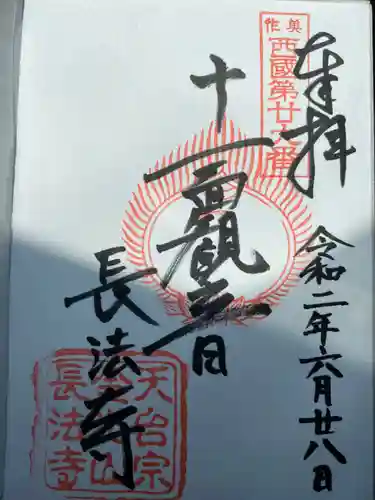 奉拝
令和二年六月廿八日
美作
西國第廿六番
十一面觀音
長法寺
天台宗
長法寺